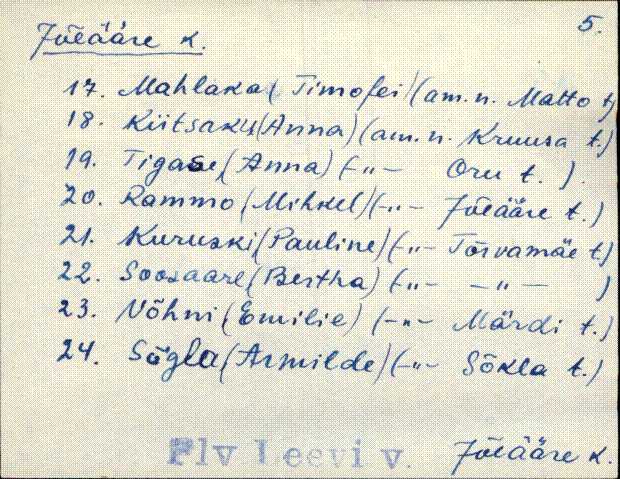 5.
Jõeääre k.
17. Mahlaka (Timofei) (am.n. Matto t.)
18. Kiitsaku (Anna) (am.n. Kruusa t.)
19. Tigase (Anna) (-„- Oru t.)
20. Rammo (Mihkel) (-„- Jõeääre t.)
21. Kuruski (Pauline) (-„- Tõrvamäe t.)
22. Soosaare (Bertha) (-„- -„- )
23. Võhni (Emilie) (-„- Märdi t.)
24. Sõgla (Armilde) (-„- Sõkla t.)
Plv Leevi v. Jõeääre k.